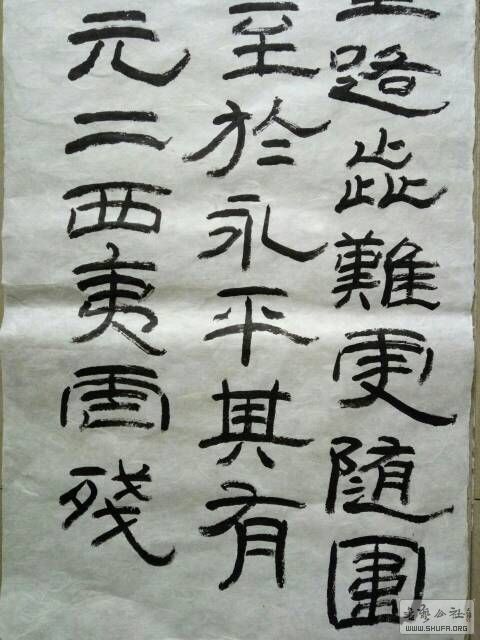 路歰難更隨圍
至於永平其有
元二西夷虐殘
WWW.SHUFA.ORG